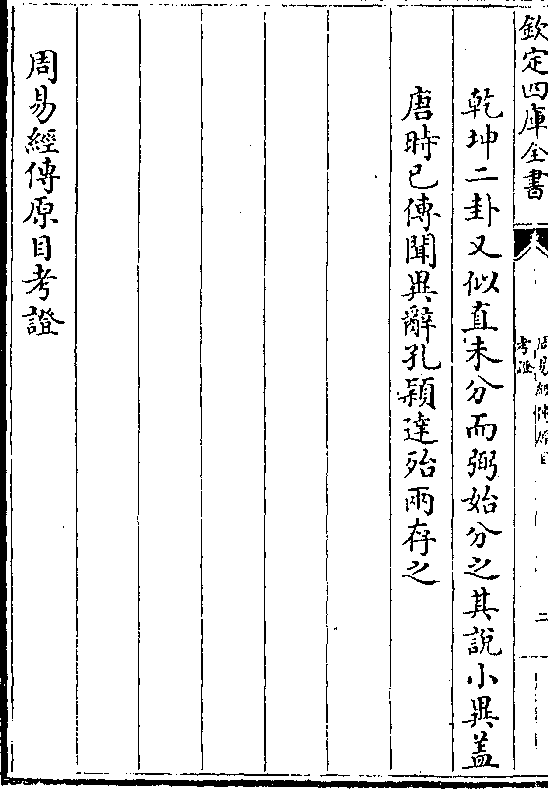 欽定四庫全書
周易經傳原目
考證
二
乾坤二卦又似直未分而弼始分之其說小異蓋
唐時已傳聞異辭孔穎達殆兩存之
周易經傳原目考證